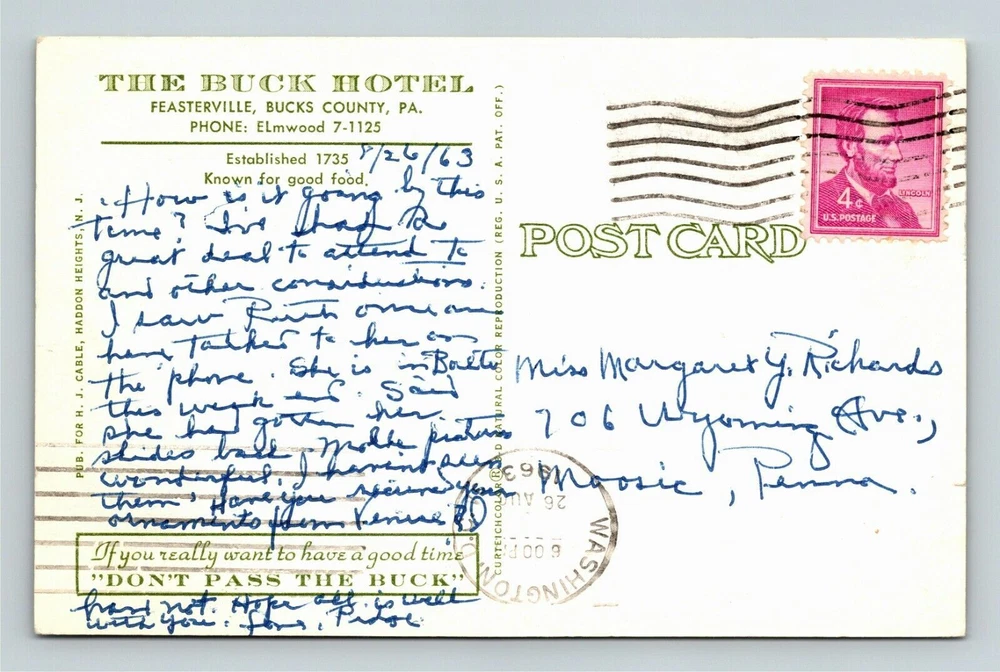 THE BUCK HOTEL
FEASTERVILLE, BUCKS COUNTY, PA.
PHONE: ELmwood 7-1125
Established 1735
Known for good food.
8/26/63
How is it going by this
time? I've had a
great deal to attend to
and other considerations.
I saw Ruth once and
have talked to her on
the phone. She is in Balto
this week end. Said
she had gotten her
slides back, Mollie pictures
wonderful, I haven't seen
them. Have you received your
ornaments from Venice?
If you really want to have a good time
"DON'T PASS THE BUCK"
have not. Hope all is well
with you. Love,
PUB. FOR H. J. CABLE, HADDON HEIGHTS, N. J.
CURTEICHCOLOR® 3-D NATURAL COLOR REPRODUCTION (REG. U. S. A. PAT. OFF.)
POST CARD
LINCOLN
4¢
U.S. POSTAGE
Miss Margaret Y. Richards
706 Wyoming Ave.,
Moosic, Penna.
WASHINGTON, D.
6:00 PM
26 AUG
1963